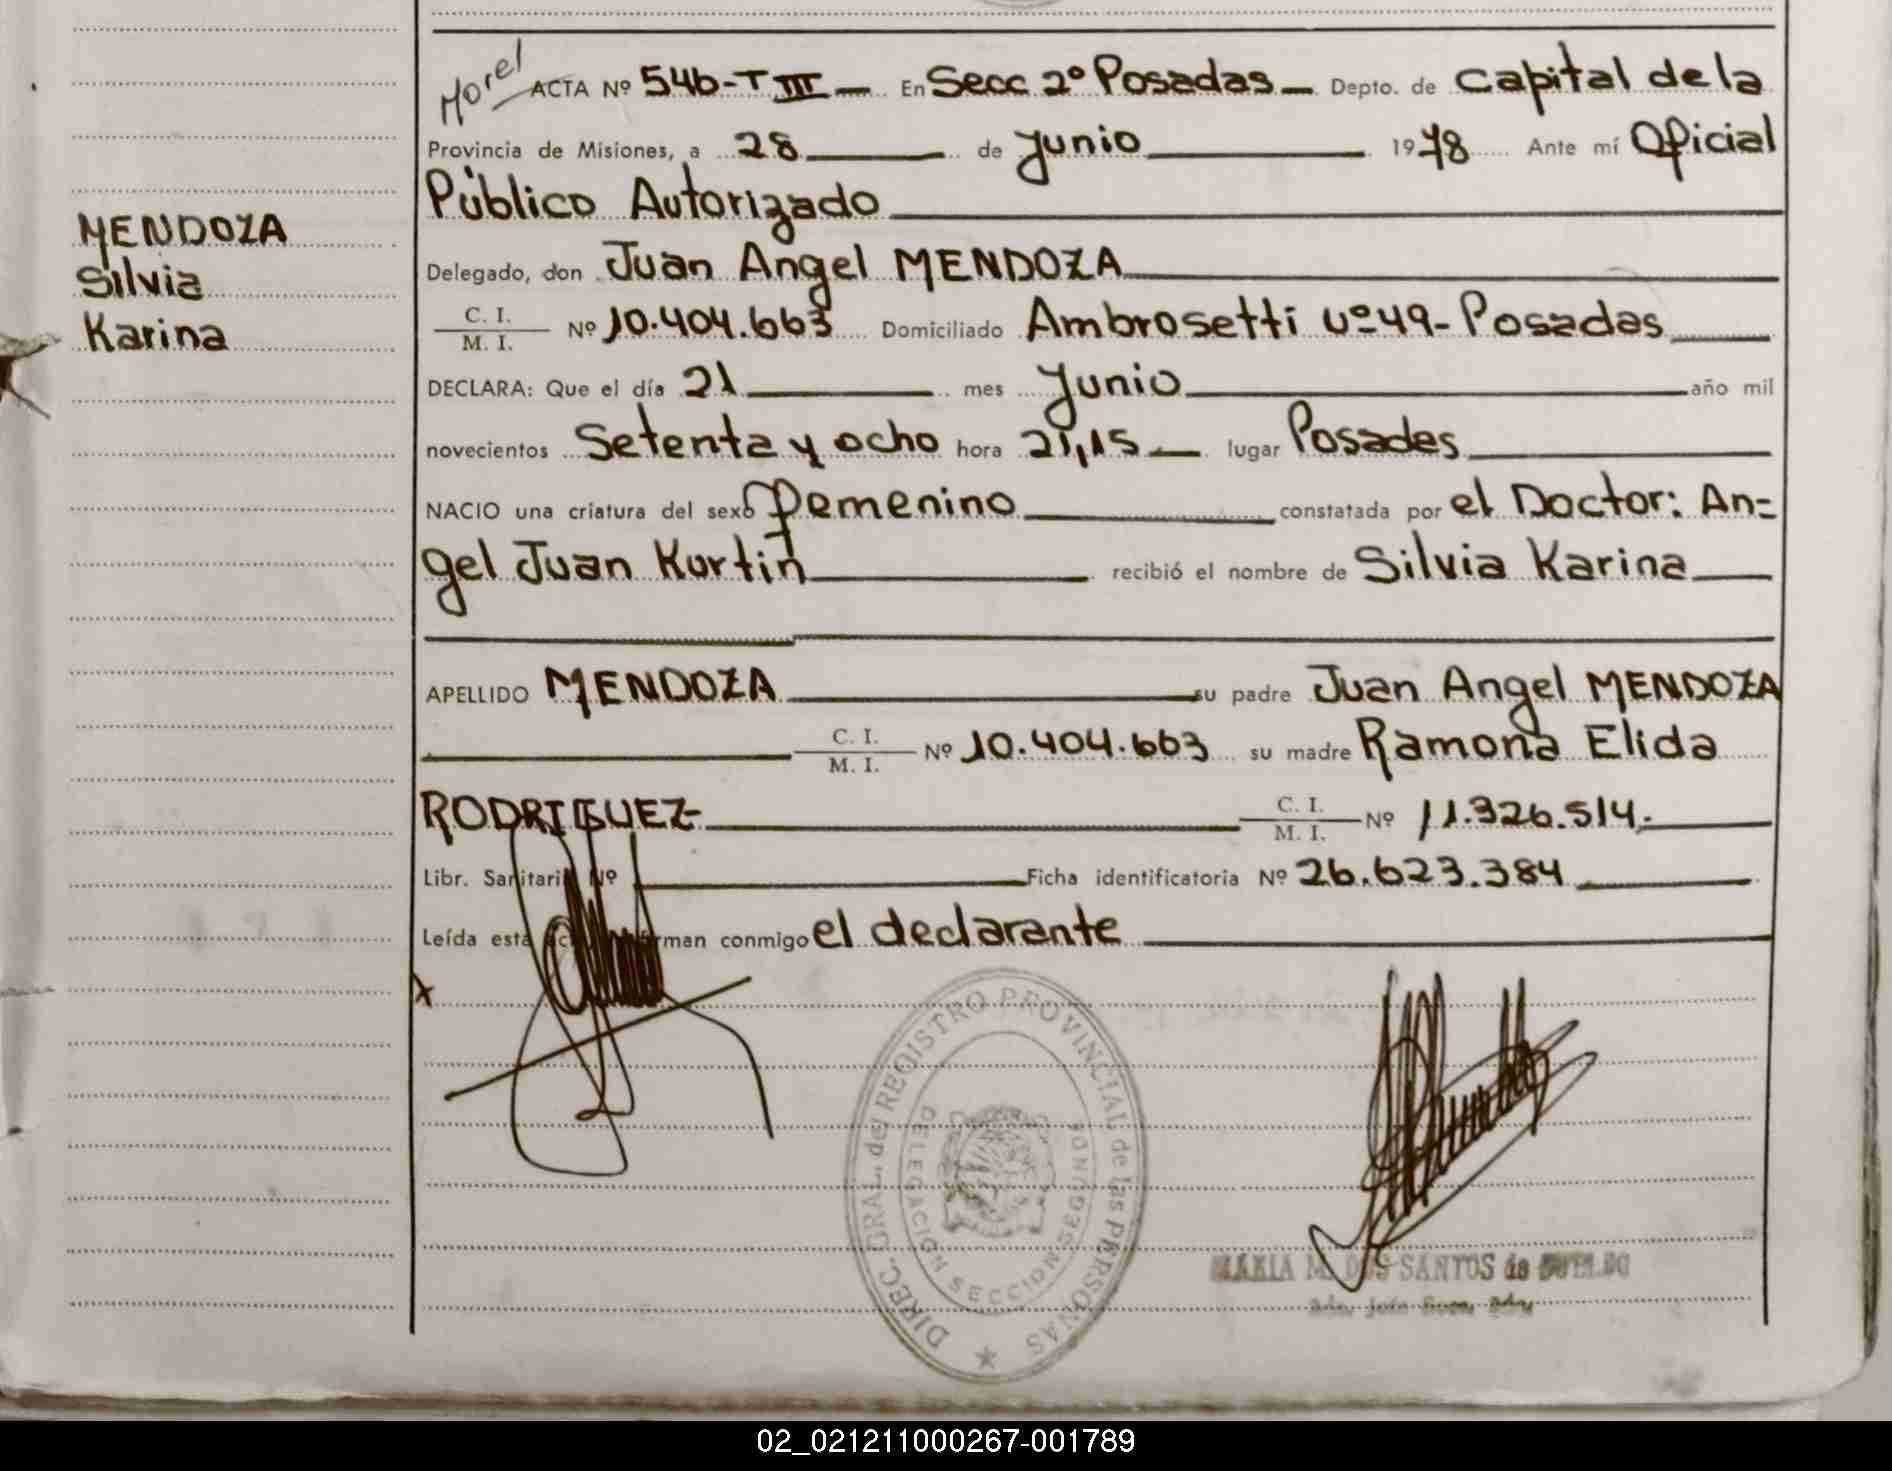 Morel ACTA Nº 546-T III En Secc 2º Posadas Depto. de Capital de la
Provincia de Misiones, a 28 de Junio 1978 Ante mí Oficial
Público Autorizado
MENDOZA
Silvia
Karina
Delegado, don Juan Angel MENDOZA
C. I.
M. I. Nº 10.404.663 Domiciliado Ambrosetti Nº 49- Posadas
DECLARA: Que el día 21 mes Junio año mil
novecientos Setenta y ocho hora 21,15 lugar Posadas
NACIO una criatura del sexo Femenino constatada por el Doctor: An=
gel Juan Kurtin recibió el nombre de Silvia Karina
APELLIDO MENDOZA su padre Juan Angel MENDOZA
C. I.
M. I. Nº 10.404.663 su madre Ramona Elida
RODRIGUEZ- C. I.
M. I. Nº 11.326.514.
Libr. Sanitaria Nº Ficha identificatoria Nº 26.623.384
Leída esta acta firman conmigo el declarante
x
DIREC. GRAL. del REGISTRO PROVINCIAL de las PERSONAS
DELEGACION SECCION SEGUNDO
MARIA M. DOS SANTOS de
02_021211000267-001789